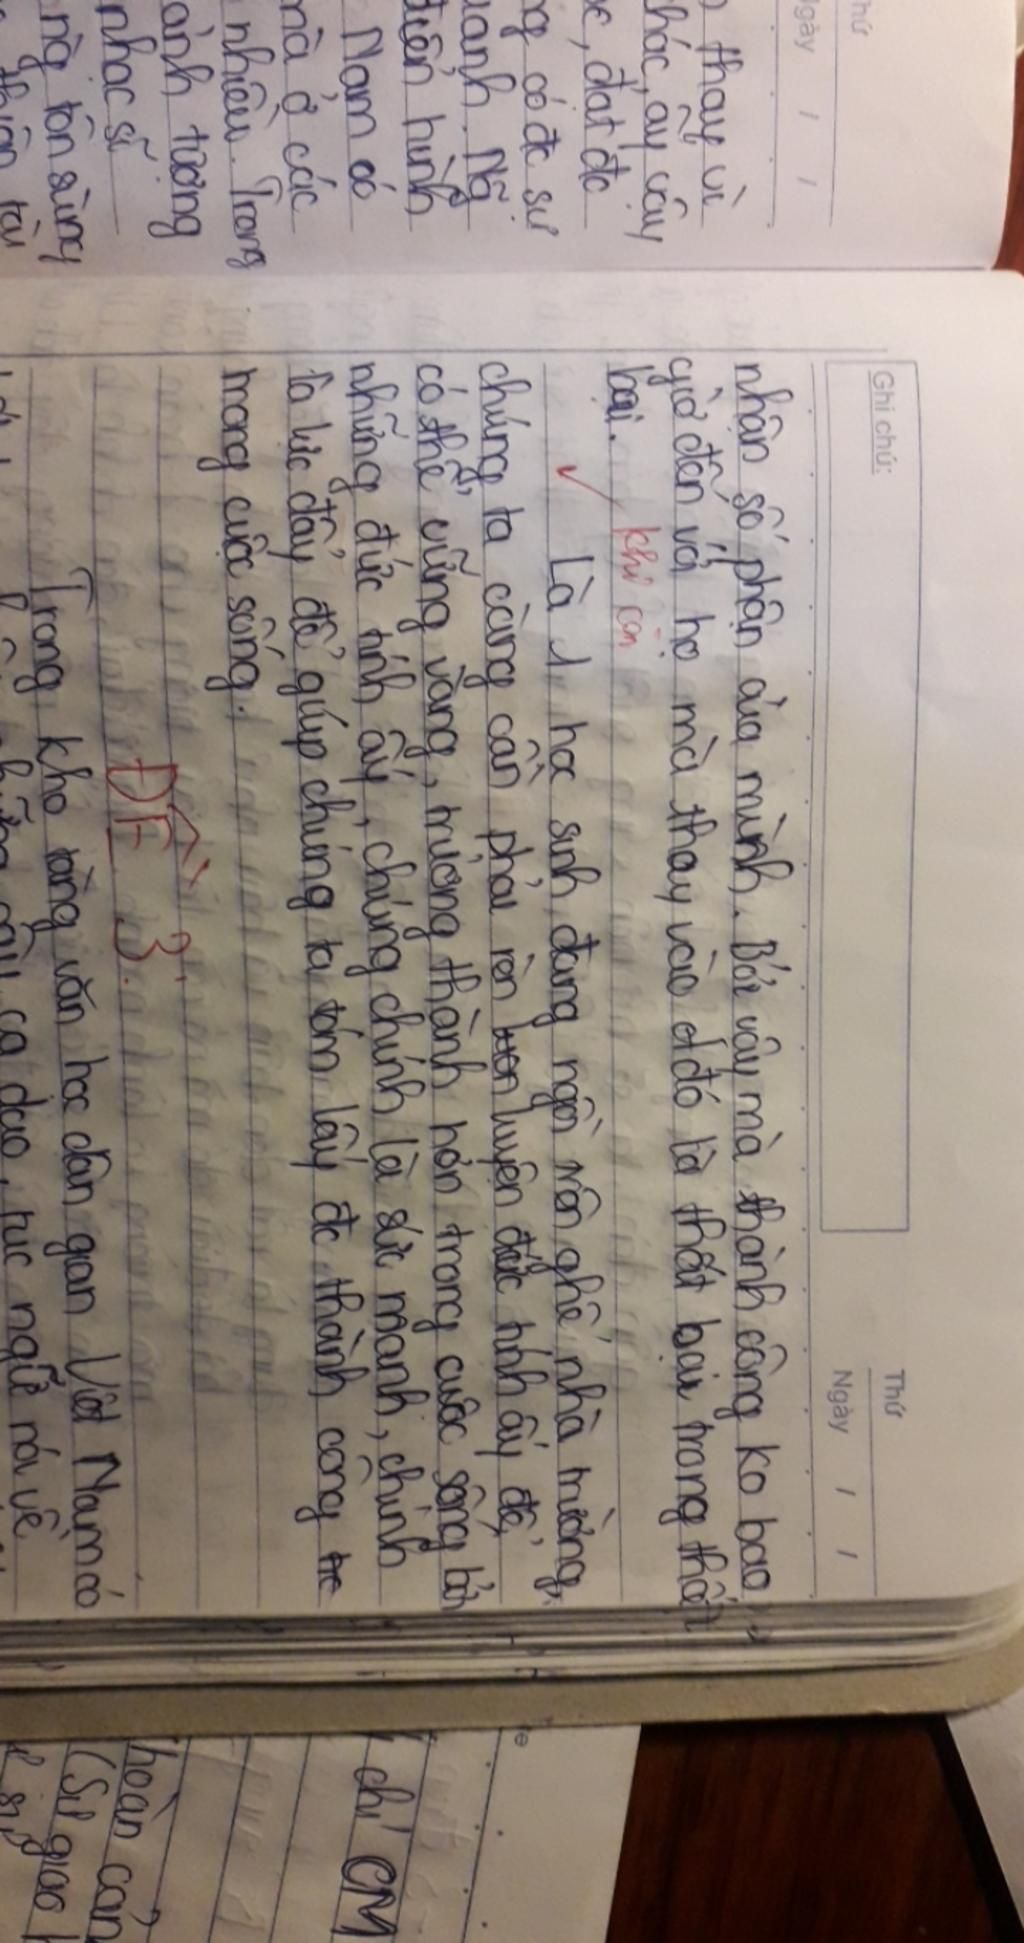 Thứ
Ngày / /
thay vì
đạt đc
có đc sự
Nam có
mà ở các
nhiều. Trong
tương
nhạc sĩ
Ghi chú:
Thứ
Ngày / /
nhận số phận của mình. Bởi vậy mà thành công ko bao
giờ đến với họ mà thay vào đó là thất bại trong thất
bại.
khi còn
Là 1 học sinh đang ngồi trên ghế nhà trường,
chúng ta càng cần phải rèn luyện đức tính ấy để
có thể vững vàng, trưởng thành hơn trong cuộc sống bởi
những đức tính ấy, chúng chính là sức mạnh, chính
là lực đẩy để giúp chúng ta tóm lấy đc thành công
trong cuộc sống.
ĐỀ 3.
Trong kho tàng văn học dân gian Việt Nam có
ca dao, tục ngữ nói về
chí CM
hoàn cảnh
(Sự giao